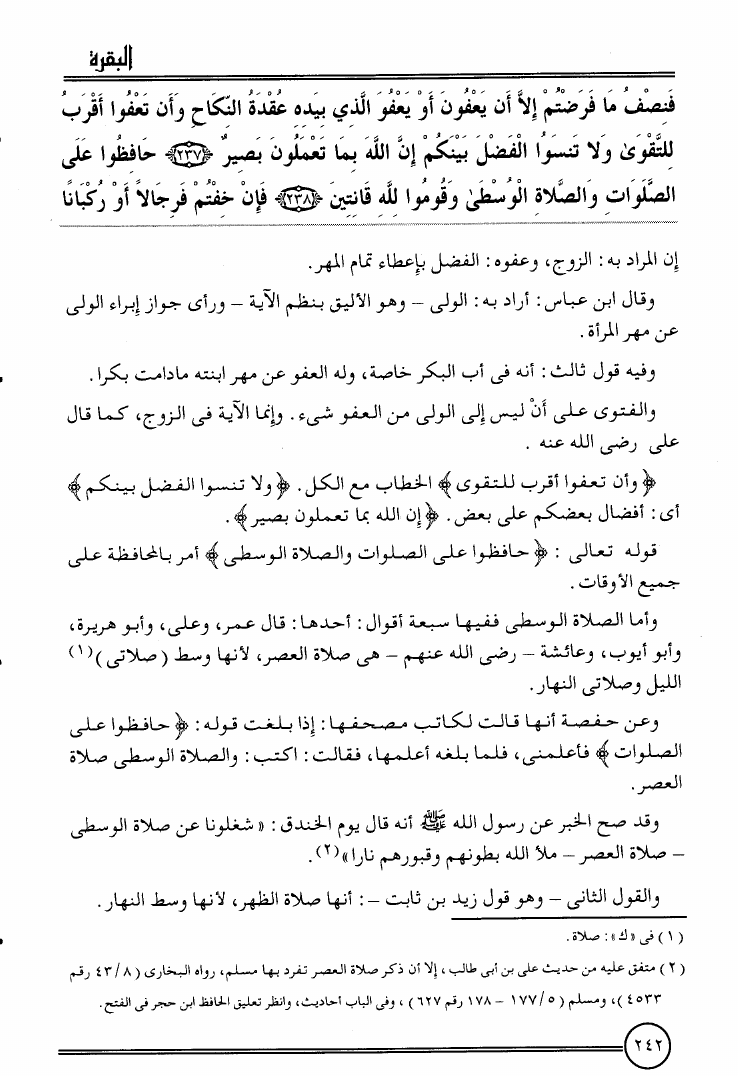 البقرة
فَنِصْفُ مَا فَرَضْتُمْ إِلاَّ أَن يَعْفُونَ أَوْ يَعْفُوَ الَّذِي بِيَدِهِ عُقْدَةُ النِّكَاحِ وَأَن تَعْفُوا أَقْرَبُ
لِلتَّقْوَىٰ وَلَا تَنسَوُا الْفَضْلَ بَيْنَكُمْ إِنَّ اللَّهَ بِمَا تَعْمَلُونَ بَصِيرٌ ﴿٢٣٧﴾ حَافِظُوا عَلَى
الصَّلَوَاتِ وَالصَّلَاةِ الْوُسْطَىٰ وَقُومُوا لِلَّهِ قَانِتِينَ ﴿٢٣٨﴾ فَإِنْ خِفْتُمْ فَرِجَالاً أَوْ رُكْبَانًا
إن المراد به: الزوج، وعفوه: الفضل بإعطاء تمام المهر.
وقال ابن عباس: أراد به: الولى – وهو الأليق بنظم الآية – ورأى جواز إبراء الولى
عن مهر المرأة.
وفيه قول ثالث: أنه فى أب البكر خاصة، وله العفو عن مهر ابنته مادامت بكرا.
والفتوى على أنْ ليس إلى الولى من العفو شىء. وإنما الآية فى الزوج، كما قال
على رضى الله عنه .
﴿وأن تعفوا أقرب للتقوى﴾ الخطاب مع الكل. ﴿ولا تنسوا الفضل بينكم﴾
أى: أفضال بعضكم على بعض. ﴿إن الله بما تعملون بصير﴾.
قوله تعالى : ﴿حافظوا على الصلوات والصلاة الوسطى﴾ أمر بالمحافظة على
جميع الأوقات.
وأما الصلاة الوسطى ففيها سبعة أقوال: أحدها: قال عمر، وعلى، وأبو هريرة،
وأبو أيوب، وعائشة – رضى الله عنهم – هى صلاة العصر، لأنها وسط (صلاتى)(١)
الليل وصلاتى النهار.
وعن حفصة أنها قالت لكاتب مصحفها: إذا بلغت قوله: ﴿حافظوا على
الصلوات﴾ فأعلمنى، فلما بلغه أعلمها، فقالت: اكتب: والصلاة الوسطى صلاة
العصر.
وقد صح الخبر عن رسول الله ﷺ أنه قال يوم الخندق: «شغلونا عن صلاة الوسطى
– صلاة العصر – ملأ الله بطونهم وقبورهم نارا»(٢).
والقول الثانى – وهو قول زيد بن ثابت –: أنها صلاة الظهر، لأنها وسط النهار.
(١) فى «ك»: صلاة.
(٢) متفق عليه من حديث على بن أبى طالب، إلا أن ذكر صلاة العصر تفرد بها مسلم، رواه البخارى (٤٣/٨ رقم
٤٥٣٣)، ومسلم (١٧٧/٥ – ١٧٨ رقم ٦٢٧)، وفى الباب أحاديث، وانظر تعليق الحافظ ابن حجر فى الفتح.
٢٤٢